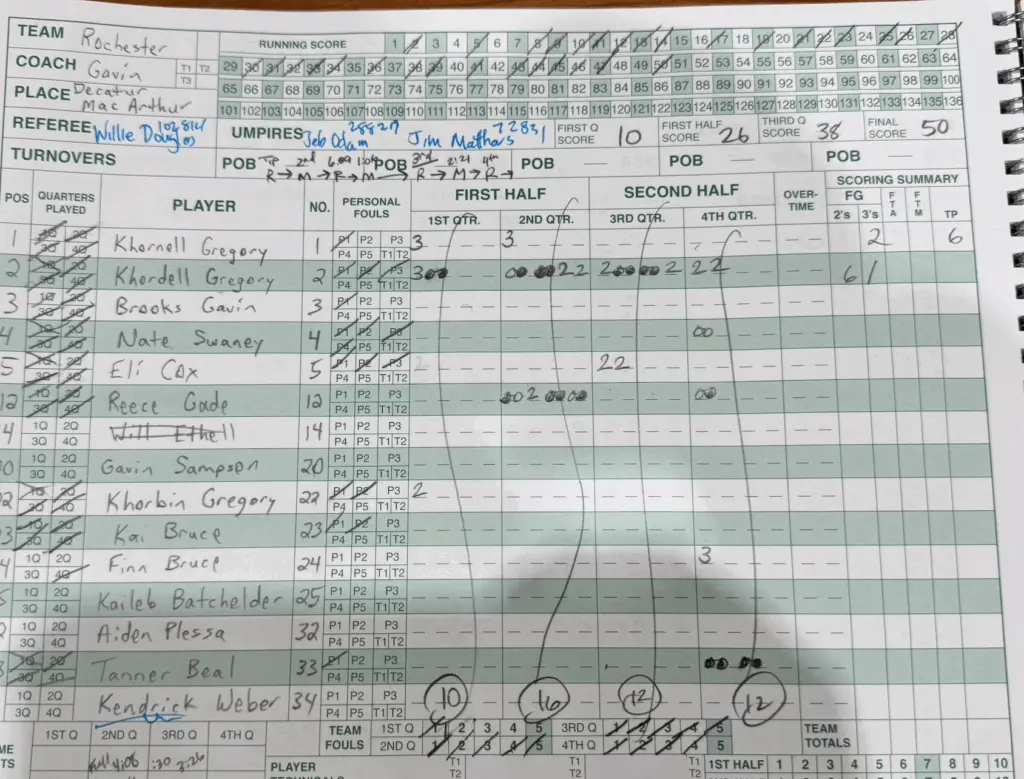 TEAM Rochester RUNNING SCORE 1 2 3 4 5 6 7 8 9 10 11 12 13 14 15 16 17 18 19 20 21 22 23 24 25 26 27 28
COACH Gavin T1 T2 T3 29 30 31 32 33 34 35 36 37 38 39 40 41 42 43 44 45 46 47 48 49 50 51 52 53 54 55 56 57 58 59 60 61 62 63 64
PLACE Decatur Mac Arthur 65 66 67 68 69 70 71 72 73 74 75 76 77 78 79 80 81 82 83 84 85 86 87 88 89 90 91 92 93 94 95 96 97 98 99 100
101 102 103 104 105 106 107 108 109 110 111 112 113 114 115 116 117 118 119 120 121 122 123 124 125 126 127 128 129 130 131 132 133 134 135 136
REFEREE Willie Douglas UMPIRES Jeb Odam 28829 Jim Mathars 72831 FIRST Q SCORE 10 FIRST HALF SCORE 26 THIRD Q SCORE 38 FINAL SCORE 50
TURNOVERS POB R→M→R→M→ POB R→M→R→ POB — POB — POB —
POS QUARTERS PLAYED PLAYER NO. PERSONAL FOULS FIRST HALF SECOND HALF OVER-TIME SCORING SUMMARY
1ST QTR. 2ND QTR. 3RD QTR. 4TH QTR. FG 2's 3's FTA FTM TP
1 1Q 2Q 3Q 4Q Khornell Gregory 1 P1 P2 P3 P4 P5 T1 T2 3 3 2 6
2 Khordell Gregory 2 P1 P2 P3 P4 P5 T1 T2 3 2 2 2 2 2 2 6 1
3 1Q 2Q 3Q 4Q Brooks Gavin 3 P1 P2 P3 P4 P5 T1 T2
4 Nate Swaney 4 P1 P2 P3 P4 P5 T1 T2
5 1Q 2Q 3Q 4Q Eli Cox 5 P1 P2 P3 P4 P5 T1 T2 2 2 2
12 1Q 2Q 3Q 4Q Reece Gade 12 P1 P2 P3 P4 P5 T1 T2 2
4 1Q 2Q 3Q 4Q Will Ethell 14 P1 P2 P3 P4 P5 T1 T2
0 1Q 2Q 3Q 4Q Gavin Sampson 20 P1 P2 P3 P4 P5 T1 T2
2 1Q 2Q 3Q 4Q Khorbin Gregory 22 P1 P2 P3 P4 P5 T1 T2 2
3 Kai Bruce 23 P1 P2 P3 P4 P5 T1 T2
4 1Q 2Q 3Q 4Q Finn Bruce 24 P1 P2 P3 P4 P5 T1 T2 3
5 1Q 2Q 3Q 4Q Kaileb Batchelder 25 P1 P2 P3 P4 P5 T1 T2
2 1Q 2Q 3Q 4Q Aiden Plessa 32 P1 P2 P3 P4 P5 T1 T2
3 1Q 2Q 3Q 4Q Tanner Beal 33 P1 P2 P3 P4 P5 T1 T2
1Q 2Q 3Q 4Q Kendrick Weber 34 P1 P2 P3 P4 P5 T1 T2 10 16 12 12
1ST Q 2ND Q 3RD Q 4TH Q TEAM FOULS 1ST Q 1 2 3 4 5 3RD Q 1 2 3 4 5 TEAM TOTALS
2ND Q 1 2 3 4 5 4TH Q 1 2 3 4 5
PLAYER T1 T2 T1 T2 T1 T2 1ST HALF 1 2 3 4 5 6 7 8 9 10